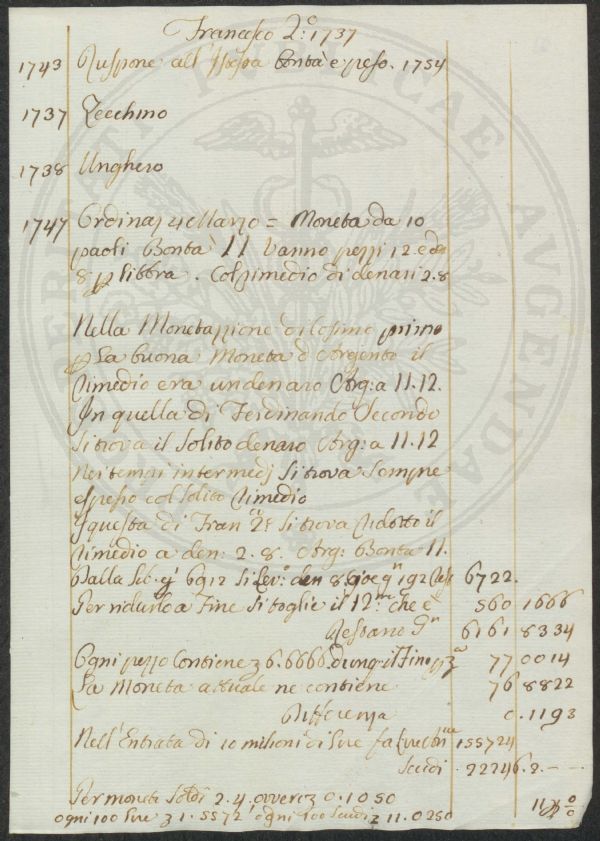 Francesco 2.º 1737
1743 Ruspone all'istessa Bontà e peso. 1754
1737 Zecchino
1738 Unghero
1747 Ordinaz 4 Marzo = Moneta da 10
paoli Bontà 11 Vanno pezzi 12. e d
8 p libbra. Col rimedio di denari 2.8
Nella Monetazzione di Cosimo primo
p La buona Moneta d'Argento il
Rimedio era un denaro Arg: a 11.12.
In quella di Ferdinando Secondo
Si trova il Solito denaro Arg: a 11.12
Nei tempi intermedj Si trova Sempre
espresso col Solito Rimedio
In questa di Fran.co 2.º Si trova Ridotto il
Rimedio a den: 2.8. Arg: Bontà 11.
Dalla Lib. 6912 Si Lev.º den 8 cioè 192 6722.
Per ridurlo a Fine Si toglie il 12.mo che è 560 1666
Restano 6161 8334
Ogni pezzo Contiene 6.6666. dunq. il Fino 77 0014
La Moneta attuale ne contiene 76 8822
Differenza 0.1193
Nell'Entrata di 10 milioni di Lire 155724
Scudi 22246.2.--
Per moneta Soldi 2.4. ovvero 0.1050
ogni 100 Lire 1.5572 ogni 100 Scudi 11.0250
PERICVLATI PVBLICAE AVGENDAE